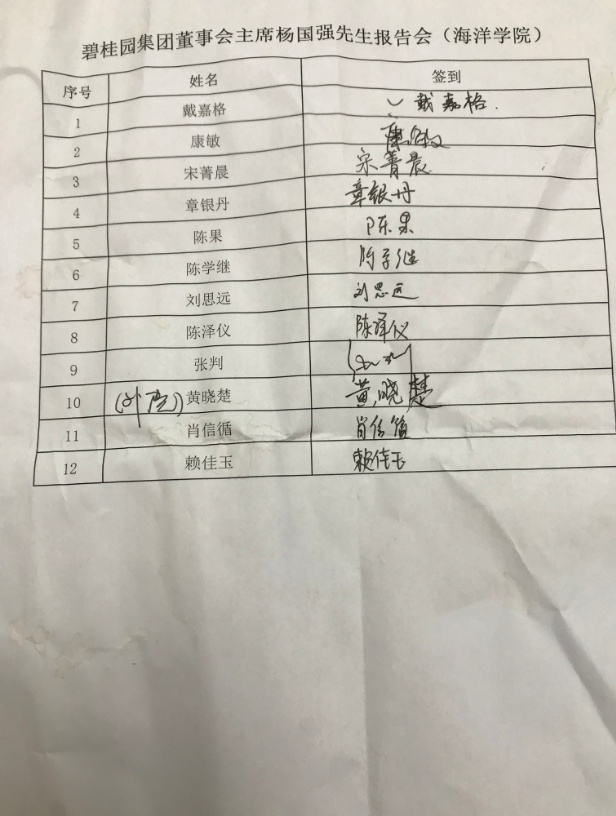 碧桂园集团董事会主席杨国强先生报告会（海洋学院）
序号 姓名 签到
1 戴嘉格 戴嘉格.
2 康敏 康敏
3 宋菁晨 宋菁晨
4 章银丹 章银丹
5 陈果 陈果
6 陈学继 陈学继
7 刘思远 刘思远
8 陈泽仪 陈泽仪
9 张判
10 黄晓楚 黄晓楚
11 肖信循 肖信循
12 赖佳玉 赖佳玉